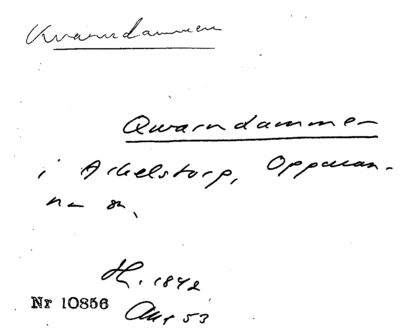 Kvarndammen
Qwarndammen
i Arkelstorp, Oppman-
na sn.
H. 1842
Nr 10856
Akt 53